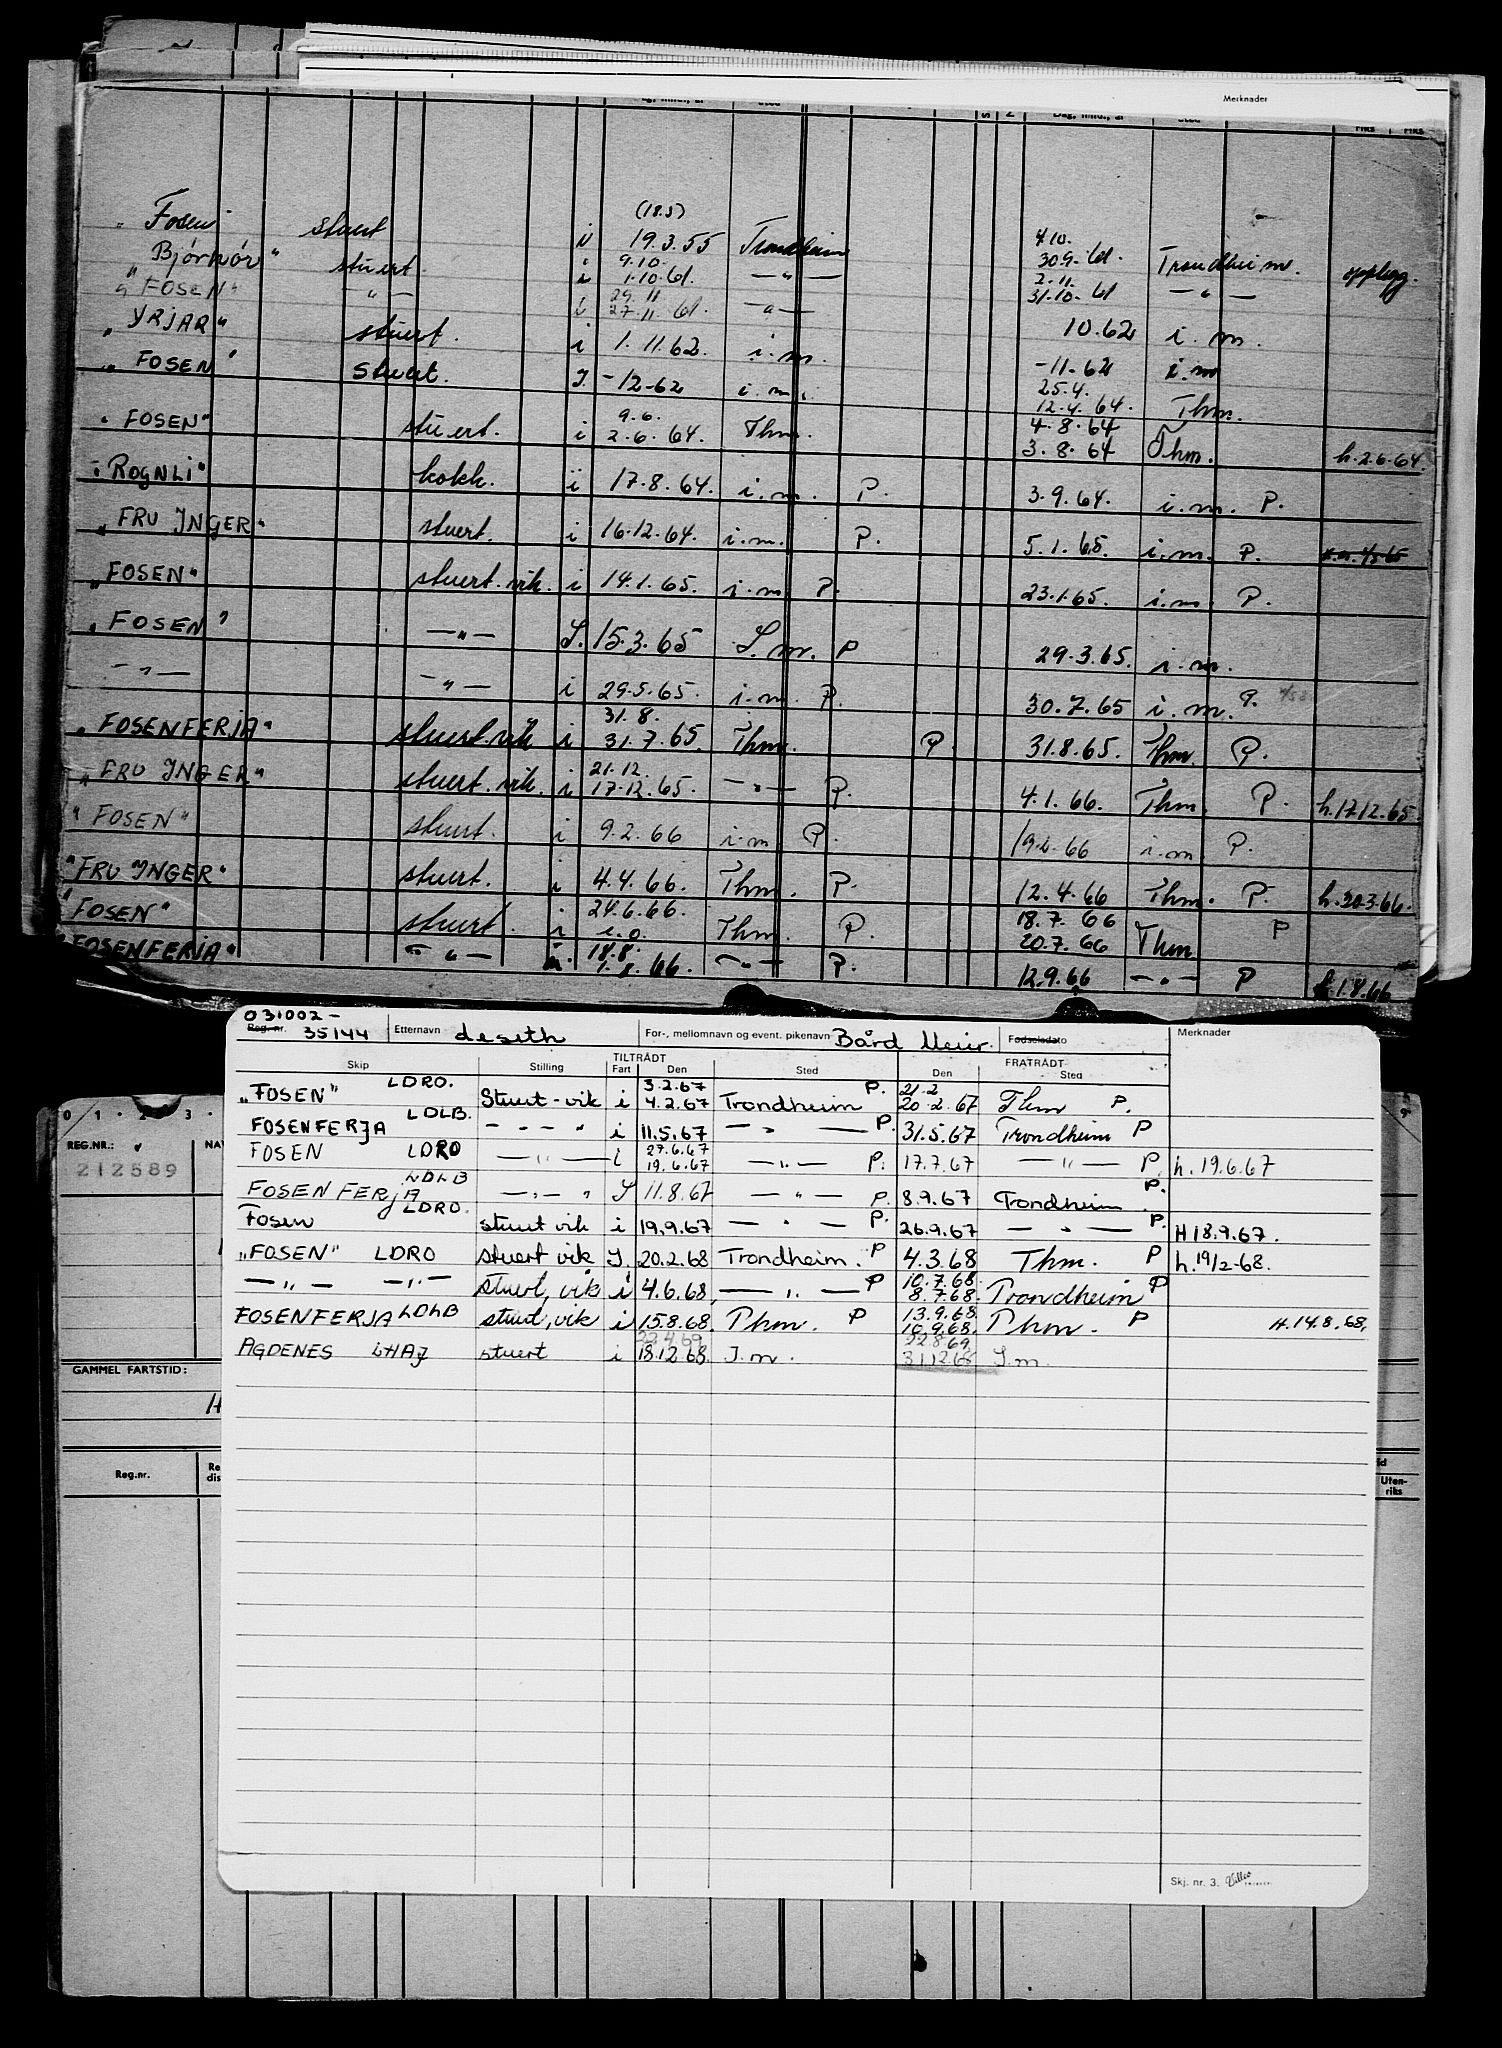 Merknader
Dag, mnd., år Sted Dag, mnd., år Sted riks riks
(18.5)
" Fosen" stuert i 19.3.55 Trondheim 4.10. 30.9.61. Trondheim. opplegg.
" Bjørnør" stuert. i 9.10. 1.10.61. — " — 2.11. 31.10.61 — " —
" FOSEN" — " — i 29.11 27.11.61. — " — 10.62 i.m.
" YRJAR" stuert. i 1.11.62. i.m. -11-62 i.m
" FOSEN" Stuert. I -12-62 i.m. 25.4. 12.4.64. Thm.
" FOSEN" stuert. i 9.6. 2.6.64. Thm. 4.8.64 3.8.64 Thm. h.2.6.64.
" ROGNLI" kokk. i 17.8.64. i.m. P. 3.9.64. i.m. P.
" FRU INGER" stuert. i 16.12.64. i.m. P. 5.1.65. i.m. P.
" FOSEN" stuert.vik. i 14.1.65. i.m P. 23.1.65. i.m. P.
" FOSEN" — " — I. 15.3.65 I.m. P 29.3.65. i.m.
— " — — " — i 29.5.65. i.m. P. 30.7.65 i.m. P.
" FOSENFERJA" stuert.vik i 31.8. 31.7.65. Thm. P. 31.8.65. Thm. P.
" FRU INGER" stuert.vik. i 21.12. 17.12.65. — " — P. 4.1.66. Thm. P. h.17.12.65.
" FOSEN" stuert. i 9.2.66 i.m P. 19.2.66 i.m. P.
" FRU INGER" stuert. i 4.4.66. Thm. P. 12.4.66 Thm. P. h.20.3.66.
" FOSEN" stuert. i 24.6.66. i.o. Thm. P. 18.7.66 20.7.66 Thm P
" FOSENFERJA" — " — i. 18.8. 1.8.66. — " — P. 12.9.66 — " — P h.1.8.66
031002-
Reg. nr. 35144 Etternavn Leseth For-, mellomnavn og event. pikenavn Bård Meier. Fødselsdato Merknader
TILTRÅDT FRATRÅDT
Skip Stilling Fart Den Sted Den Sted
"FOSEN" LDRO. Stuert-vik i 3.2.67 4.2.67 Trondheim P. 21.2 20.2.67 Thm P.
FOSENFERJA LDLB. — " — " i 11.5.67 — " — P. 31.5.67 Trondheim P
FOSEN LDRO — " — i 27.6.67 19.6.67 — " — P. 17.7.67 — " — P. h. 19.6.67
FOSENFERJA LDLB — " — " I 11.8.67 — " — P. 8.9.67 Trondheim P.
Fosen LDRO. stuert vik i 19.9.67 — " — P. 26.9.67 — " — P. H 18.9.67.
"FOSEN" LDRO stuert vik I. 20.2.68 Trondheim. P 4.3.68 Thm. P h.19/2-68.
— " — — " — stuert, vik i 4.6.68. — " — P 10.7.68. 8.7.68. Trondheim P
FOSENFERJA LDLB stuert, vik i 15.8.68. Thm. P 13.9.68. 10.9.68. Thm. P H.14.8.68.
AGDENES LHAJ stuert i 22.4.69 18.12.68. I.m. 22.8.69. 31.12.68 I.m.
Skj. nr. 3.
0 1 2 3
REG.NR.: NA
212589
GAMMEL FARTSTID:
H
Reg.nr. Re dis
id
Uten-
riks